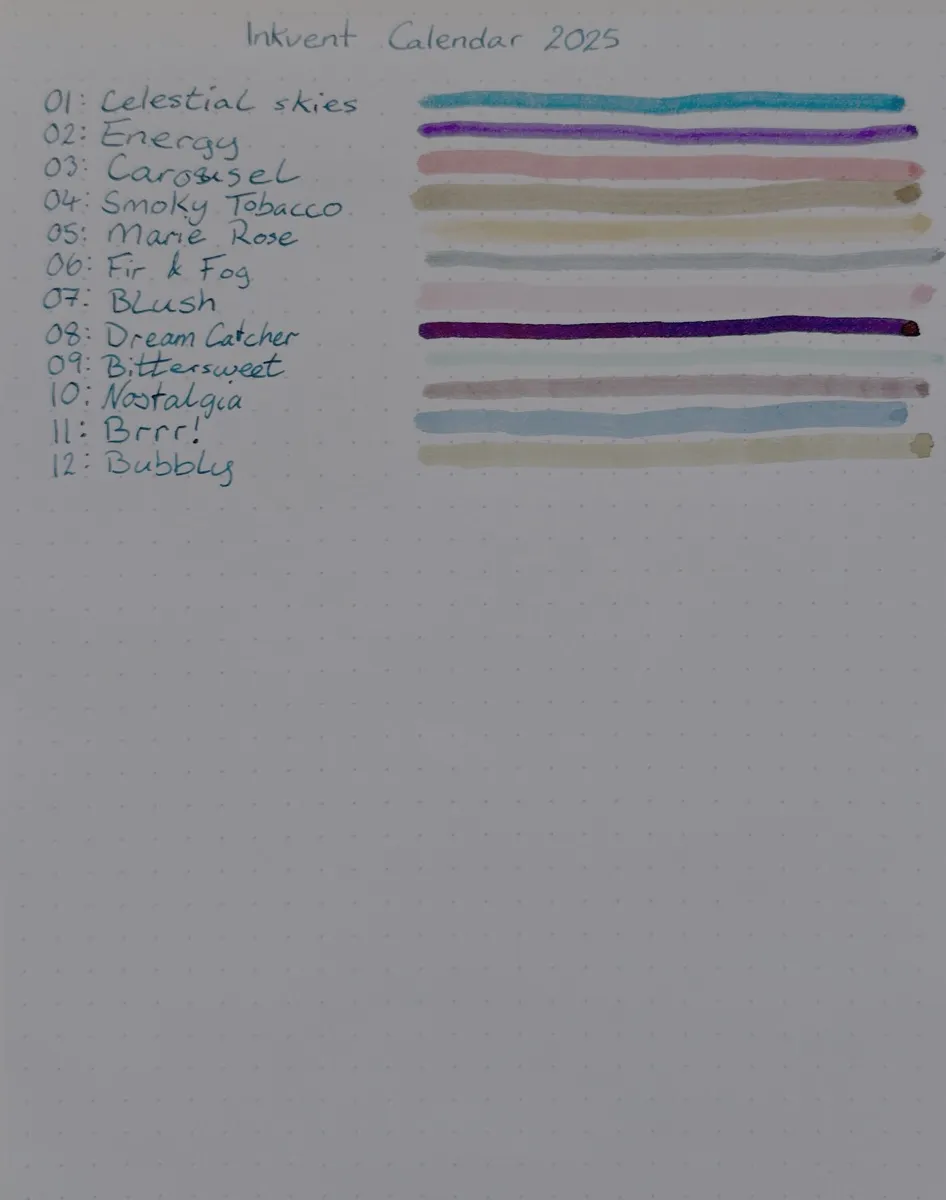 Inkvent Calendar 2025
01: Celestial skies
02: Energy
03: Carousel
04: Smoky Tobacco
05: Marie Rose
06: Fir & Fog
07: Blush
08: Dream Catcher
09: Bittersweet
10: Nostalgia
11: Brrr!
12: Bubbly